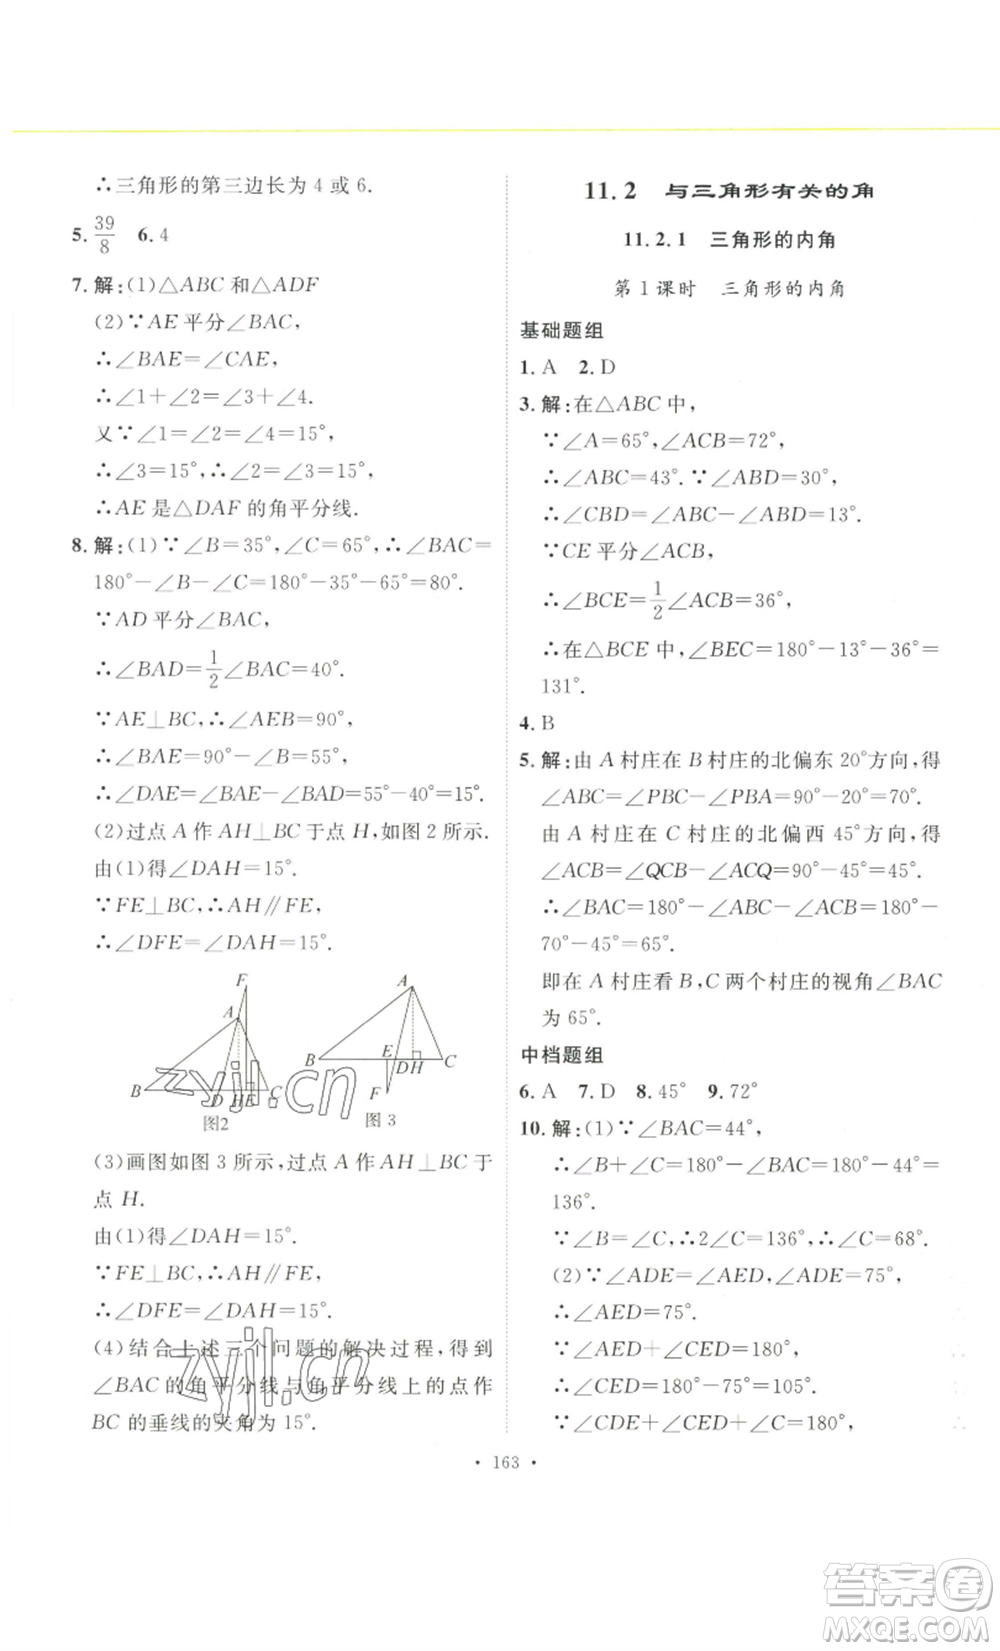 ∴三角形的第三边长为 4 或 6.
5. 39/8  6. 4
7. 解:(1)△ABC 和△ADF
(2)∵AE 平分∠BAC,
∴∠BAE=∠CAE.
∴∠1+∠2=∠3+∠4.
又∵∠1=∠2=15°,
∴∠3=15°,∴∠2=∠3=15°.
∴AE 是△DAF 的角平分线.
8. 解:(1)∵∠B=35°,∠C=65°,∴∠BAC=
180°-∠B-∠C=180°-35°-65°=80°.
∵AD 平分∠BAC,
∴∠BAD=1/2∠BAC=40°.
∵AE⊥BC,∴∠AEB=90°,
∴∠BAE=90°-∠B=55°,
∴∠DAE=∠BAE-∠BAD=55°-40°=15°.
(2)过点 A 作 AH⊥BC 于点 H,如图 2 所示.
由(1)得∠DAH=15°.
∵FE⊥BC,∴AH∥FE,
∴∠DFE=∠DAH=15°.
F
A
B D HE C
图2
A
B E DH C
F
图 3
(3)画图如图 3 所示,过点 A 作 AH⊥BC 于
点 H.
由(1)得∠DAH=15°.
∵FE⊥BC,∴AH∥FE,
∴∠DFE=∠DAH=15°.
(4)结合上述三个问题的解决过程,得到
∠BAC 的角平分线与角平分线上的点作
BC 的垂线的夹角为 15°.
11.2 与三角形有关的角
11.2.1 三角形的内角
第 1 课时 三角形的内角
基础题组
1. A  2. D
3. 解:在△ABC 中,
∵∠A=65°,∠ACB=72°,
∴∠ABC=43°.∵∠ABD=30°,
∴∠CBD=∠ABC-∠ABD=13°.
∵CE 平分∠ACB,
∴∠BCE=1/2∠ACB=36°,
∴在△BCE 中,∠BEC=180°-13°-36°=
131°.
4. B
5. 解:由 A 村庄在 B 村庄的北偏东 20°方向,得
∠ABC=∠PBC-∠PBA=90°-20°=70°.
由 A 村庄在 C 村庄的北偏西 45°方向,得
∠ACB=∠QCB-∠ACQ=90°-45°=45°.
∴∠BAC=180°-∠ABC-∠ACB=180°-
70°-45°=65°.
即在 A 村庄看 B,C 两个村庄的视角∠BAC
为 65°.
中档题组
6. A  7. D  8. 45°  9. 72°
10. 解:(1)∵∠BAC=44°,
∴∠B+∠C=180°-∠BAC=180°-44°=
136°.
∵∠B=∠C,∴2∠C=136°,∴∠C=68°.
(2)∵∠ADE=∠AED,∠ADE=75°,
∴∠AED=75°.
∵∠AED+∠CED=180°,
∴∠CED=180°-75°=105°.
∵∠CDE+∠CED+∠C=180°,
• 163 •
zyjl.cn
zyjl.cn
答案卷
MXQE.COM